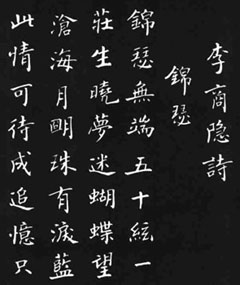 李商隐詩
錦瑟
錦瑟無端五十絃一
莊生曉夢迷蝴蝶望
滄海月明珠有淚藍
此情可待成追憶只